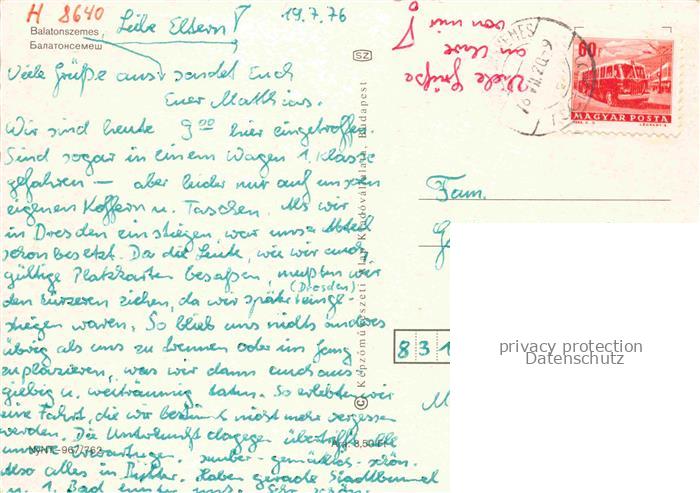 H 8640
19.7.76
Balatonszemes
Балатонсемеш
Liebe Eltern!
Viele Grüße aus sendet Euch
Euer Matthias.
Wir sind heute 9.00 hier eingetroffen.
Sind sogar in einem Wagen 1. Klasse
gefahren – aber leider nur auf unseren
eigenen Koffern u. Taschen. Als wir
in Dresden einstiegen, war unser Abteil
schon besetzt. Da die Leute, wie wir auch,
gültige Platzkarten besaßen, mußten wir
den kürzeren ziehen, da wir später (Dresden) einge-
stiegen waren. So blieb uns nichts anderes
übrig als uns zu trennen oder im Gang
zu plazieren, was wir dann auch aus-
giebig u. weiträumig taten. So erlebten wir
eine Fahrt, die wir bestimmt nicht mehr vergessen
werden. Die Unterkunft dagegen übertrifft alle
unsere Erwartungen. sauber - gemütlich - schön.
Also alles in Butter. Haben gerade Stadtbummel
u. 1. Bad hinter uns. Sehr schön.
NyNT.–967/762
Ára: 8,50 Ft
© Képzőművészeti Alap Kiadóvállalata, Budapest
SZ
Viele Grüße
an Uwe
von mir!
60 f
MAGYAR POSTA
Fam.
831
privacy protection
Datenschutz